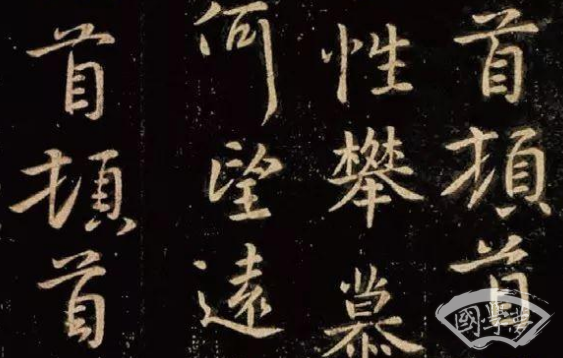 首頓首
性攀慕
何望遠
首頓首
國學夢